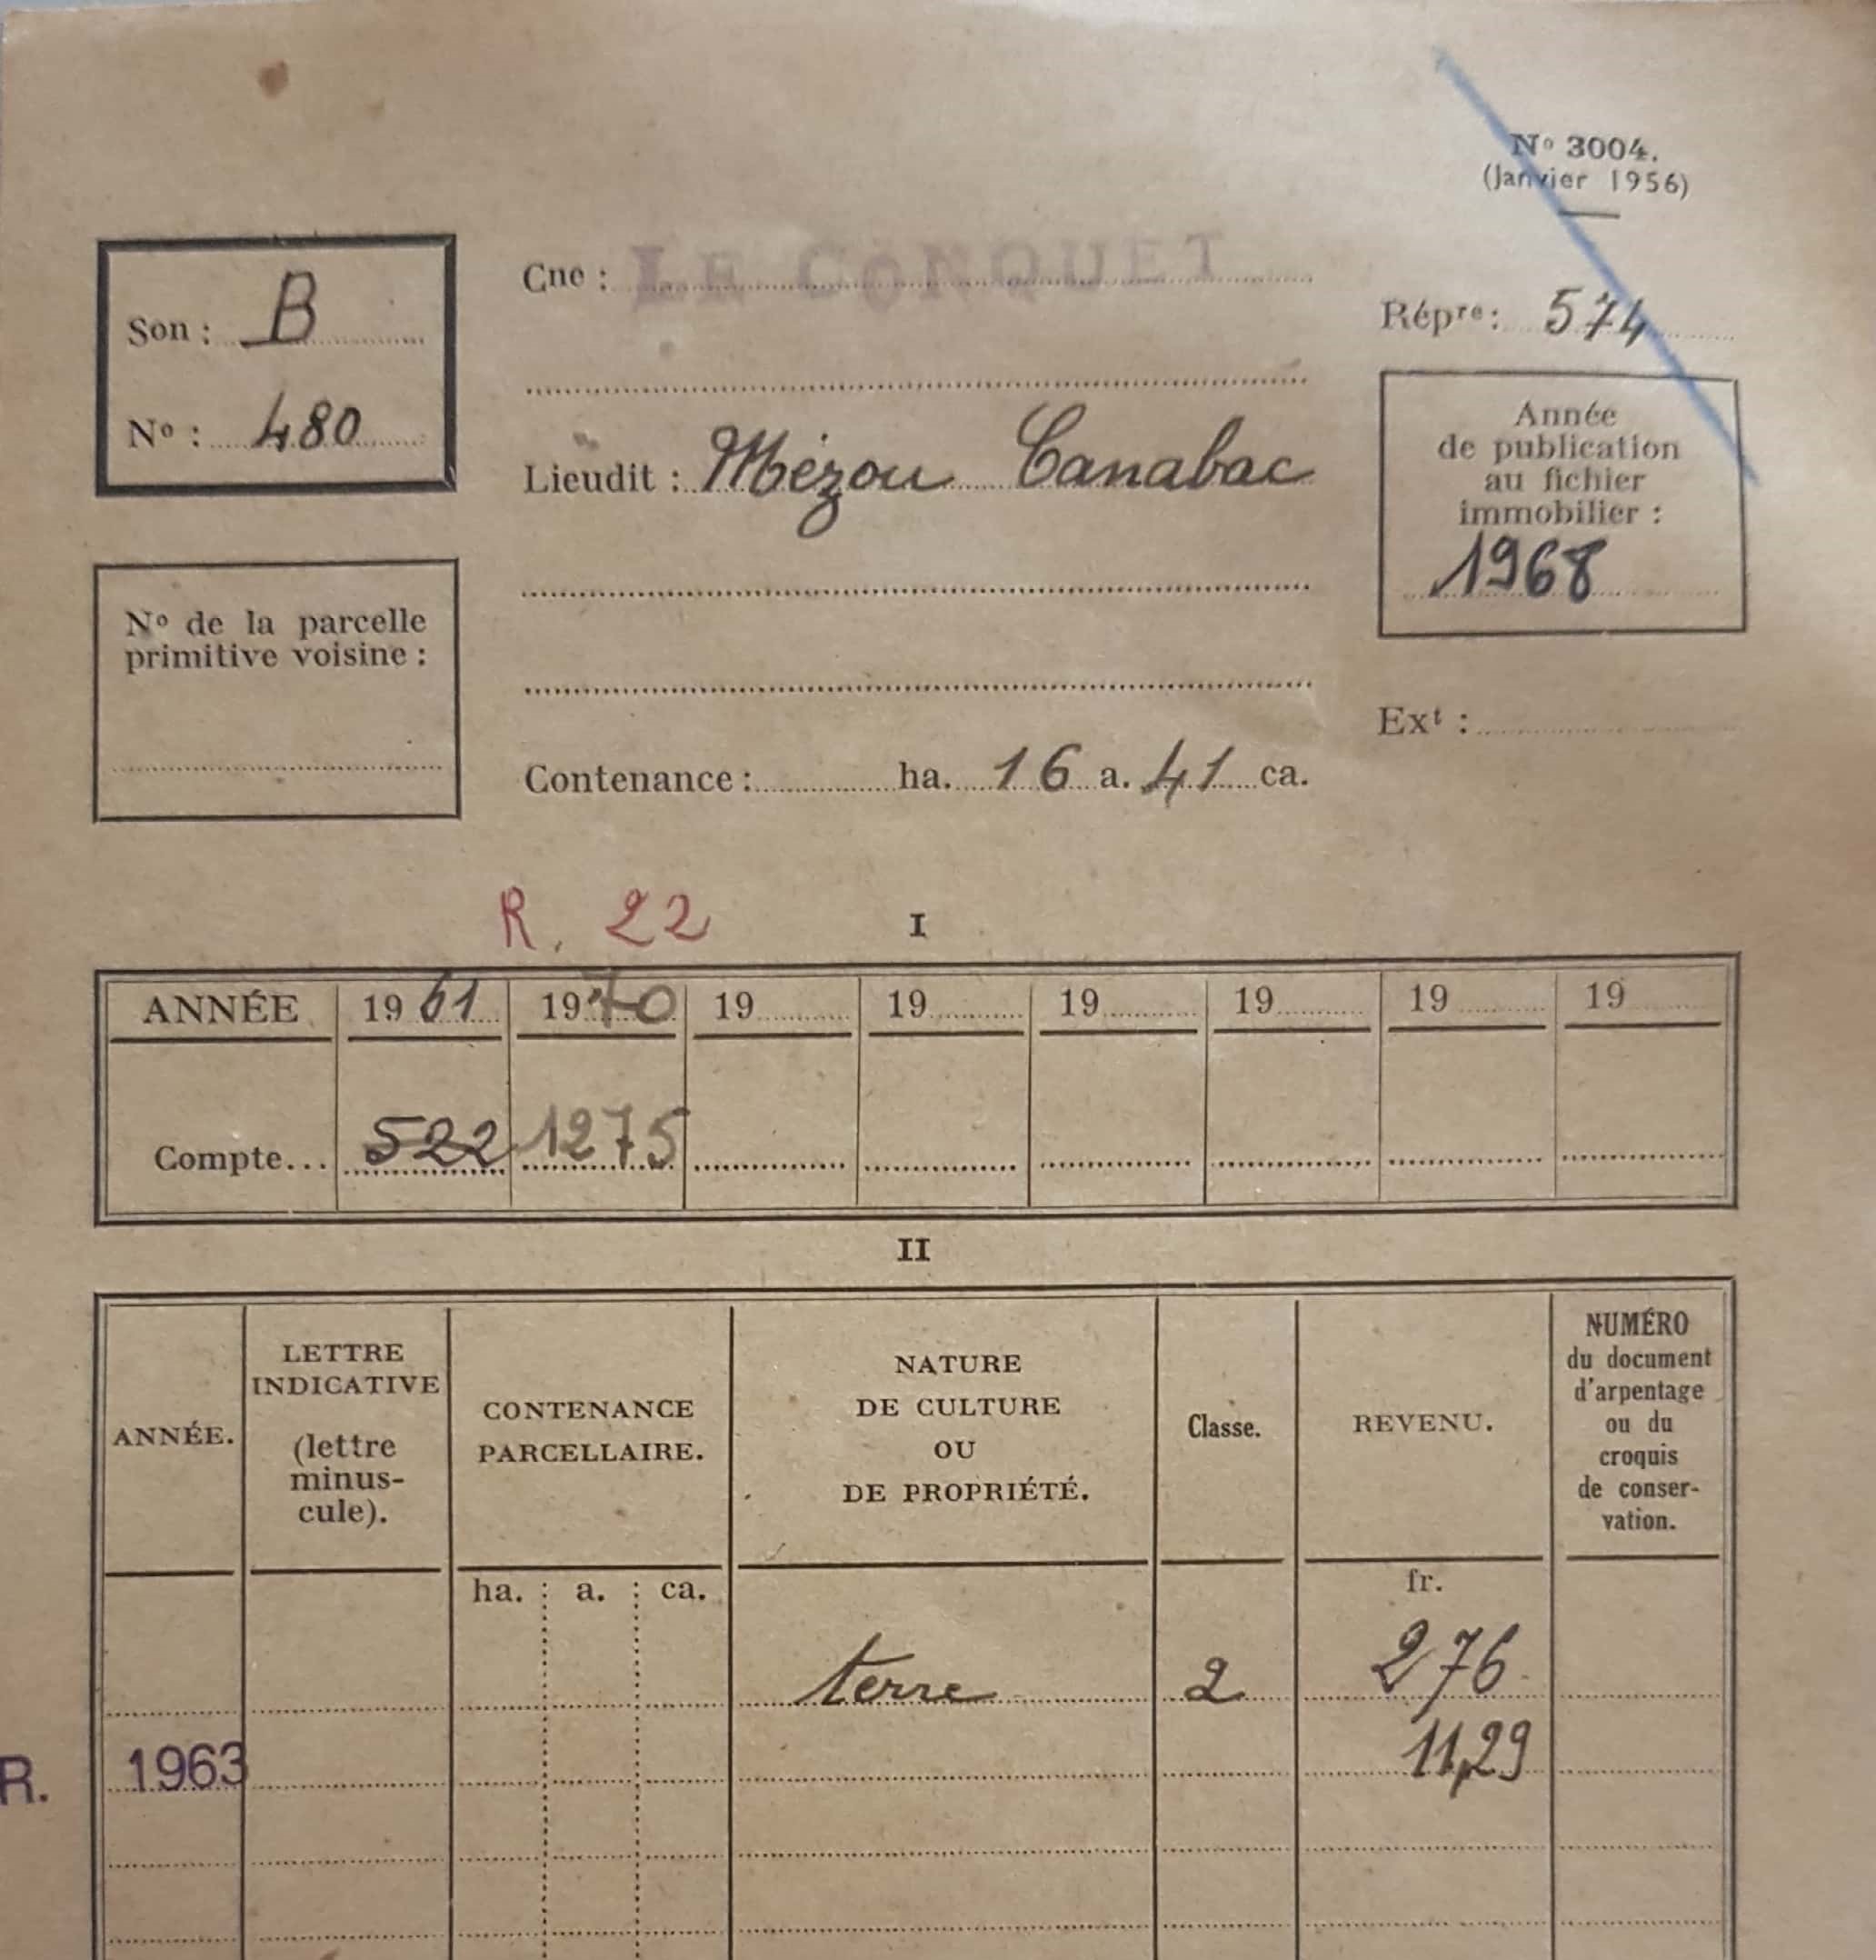 N° 3004.
(Janvier 1956)
Son : B
N° : 480
Cne : LE CONQUET
Lieudit : Mézou Canabac
Répre : 574
Année
de publication
au fichier
immobilier :
1968
N° de la parcelle
primitive voisine :
Ext :
Contenance : ha. 16 a. 41 ca.
R. 22
I
ANNÉE 1961 1970 19 19 19 19 19 19
Compte... 522 1275
II
ANNÉE.
LETTRE
INDICATIVE
(lettre
minus-
cule).
CONTENANCE
PARCELLAIRE.
NATURE
DE CULTURE
OU
DE PROPRIÉTÉ.
Classe.
REVENU.
NUMÉRO
du document
d'arpentage
ou du
croquis
de conser-
vation.
ha. a. ca. fr.
terre 2 276
R. 1963 11,29